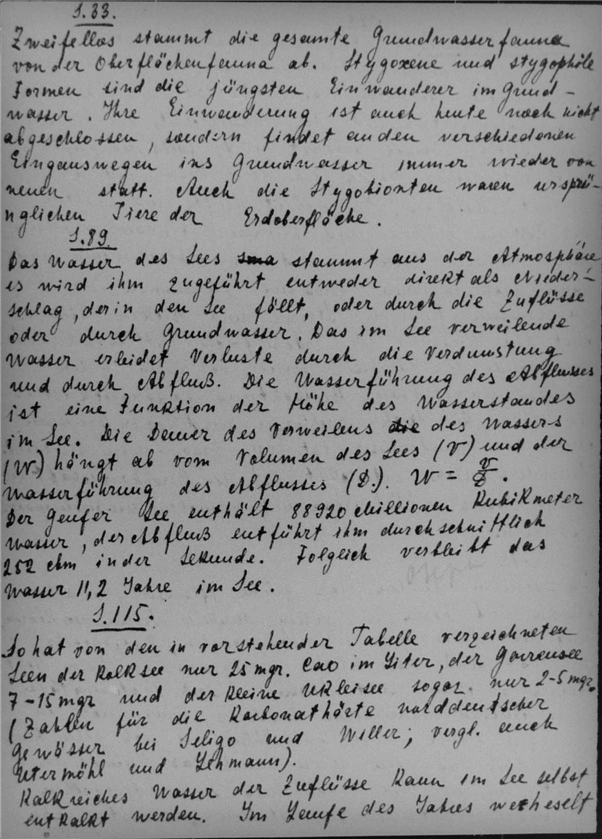 S.33.
Zweifellos stammt die gesamte Grundwasserfauna
von der Oberflächenfauna ab. Stygoxene und stygophile
Formen sind die jüngsten Einwanderer im Grund-
wasser. Ihre Einwanderung ist auch heute noch nicht
abgeschlossen, sondern findet an den verschiedenen
Eingangswegen ins Grundwasser immer wieder von
neuen statt. Auch die Stygobionten waren ursprü-
nglichen Tiere der Erdoberfläche.
S.89.
Das Wasser des Sees stammt aus der Atmosphäre
es wird ihm zugeführt entweder direkt als Nieder-
schlag, der in den See fällt, oder durch die Zuflüsse
oder durch Grundwasser. Das im See verweilende
Wasser erleidet Verluste durch die Verdunstung
und durch Abfluß. Die Wasserführung des Abflusses
ist eine Funktion der Höhe des Wasserstandes
im See. Die Dauer des Verweilens des Wassers
(W) hängt ab vom Volumen des Sees (V) und der
Wasserführung des Abflusses (D.). W = V/D.
Der Genfer See enthält 88920 Millionen Kubikmeter
Wasser, der Abfluß entführt ihm durchschnittlich
252 cbm in der Sekunde. Folglich verbleibt das
Wasser 11,2 Jahre im See.
S.115.
So hat von den in vorstehender Tabelle verzeichneten
Seen der Kalksee nur 25 mgr. CaO im Liter, der
7-15 mgr und der kleine Ukleisee sogar nur 2-5 mgr.
(Zahlen für die Karbonathärte norddeutscher
Gewässer bei Seligo und Willer; vergl. auch
Utermöhl und Lehmann).
Kalkreiches Wasser der Zuflüsse kann im See selbst
entkalkt werden. Im Laufe des Jahres wechselt